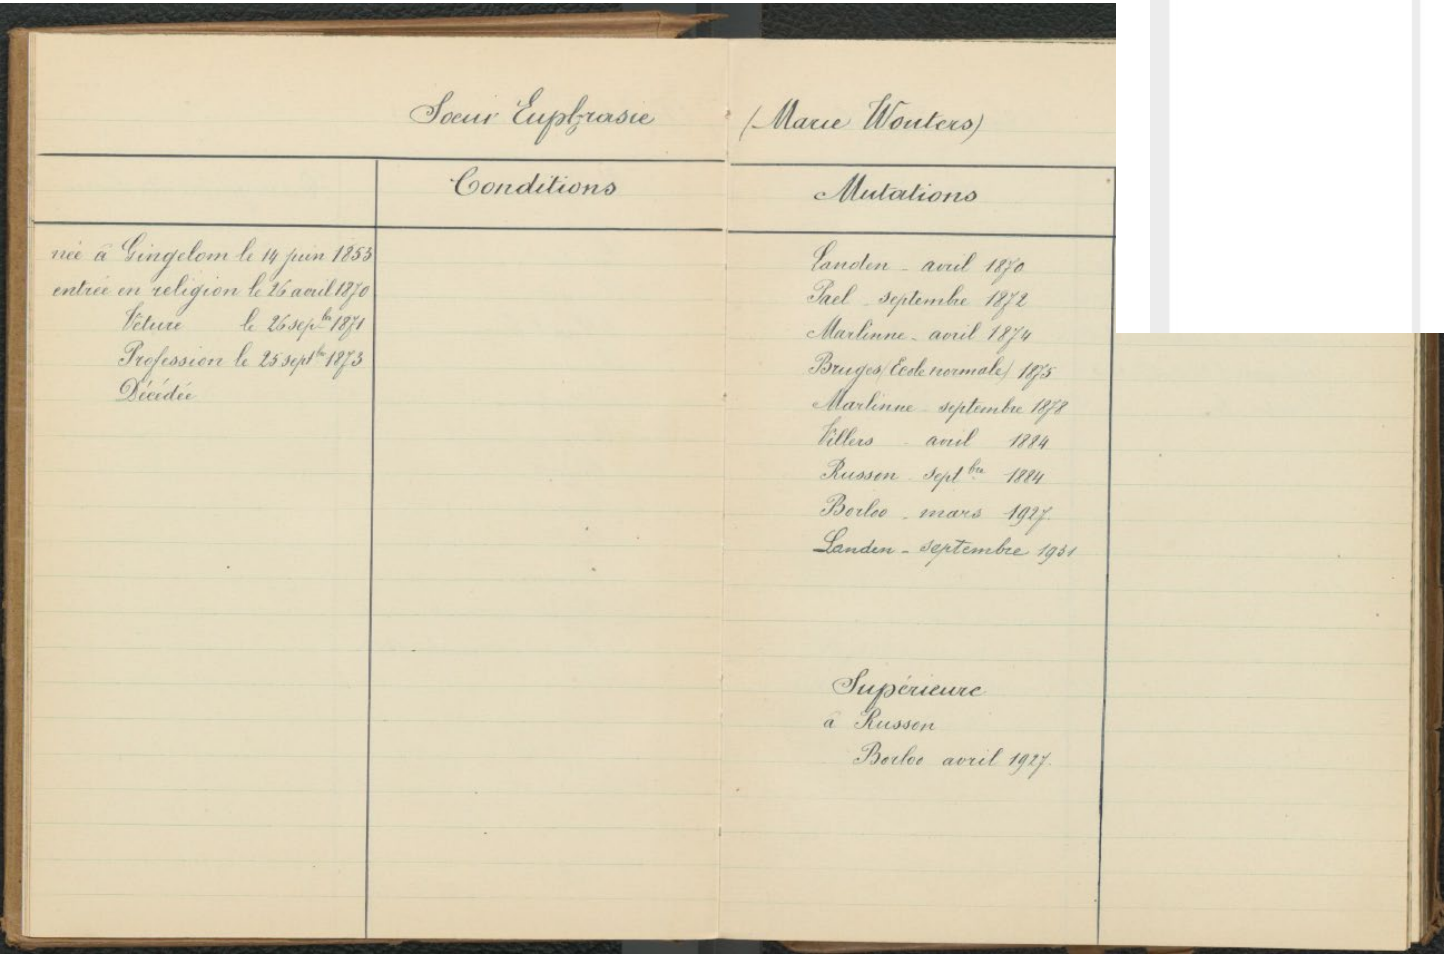 Soeur Euphrasie (Marie Wouters)
Conditions
Mutations
née à Gingelom le 14 juin 1853
entrée en religion le 26 avril 1870
Vêture le 26 sepbre 1871
Profession le 25 septbre 1873
Décédée
Landen - avril 1870
Pael - septembre 1872
Marlinne - avril 1874
Bruges (Ecole normale) 1875
Marlinne - septembre 1878
Villers - avril 1884
Russon - septbre 1884
Borloo - mars 1927
Landen - septembre 1931
Supérieure
à Russon
Borloo avril 1927